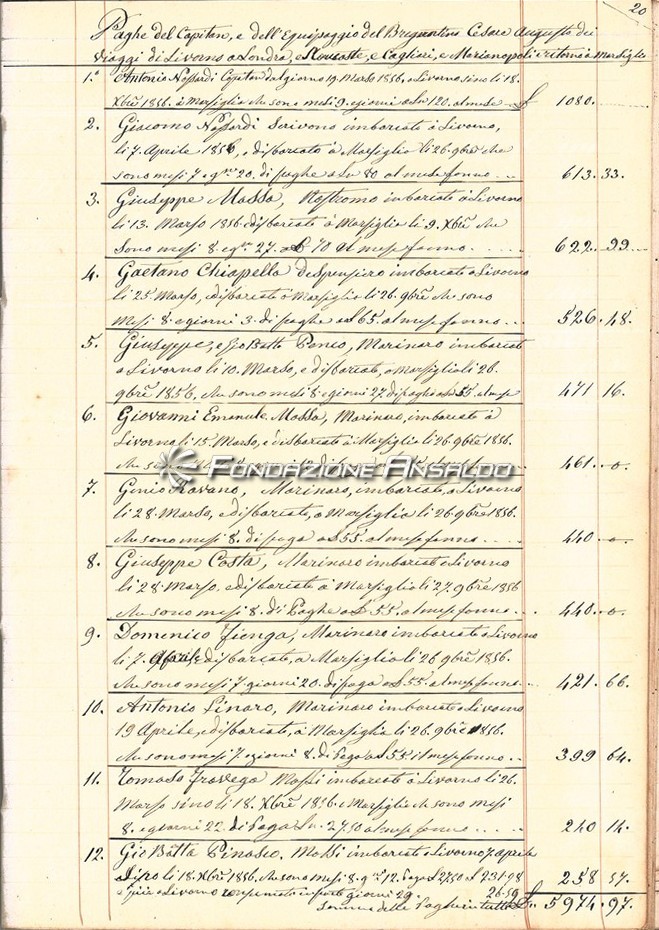 20
Paghe del Capitan, e dell'Equipaggio del Brigantino Cesare Augusto dei
viaggi di Livorno a Londra, e Cagliari, e Marianopoli e ritorno a Marsiglia
1.° Antonio Capitan dal giorno 19. Marso 1856. a Livorno sino li 18.
Xbrẽ 1856. à Marsiglia che sono mesi 9. e giorni a Ln 120. al mese £ 1080.
2. Giacomo Scrivano imbarcato à Livorno,
li 7. Aprile 1856, e disbarcato à Marsiglia li 26. gbrẽ che
sono mesi 7 e grni 20. di paghe a Ln 80 al mese fanno 613. 33.
3. Giuseppe Massa, Nostromo imbarcato à Livorno
li 13. Marso 1856. disbarcato à Marsiglia li 9. Xbrẽ che
sono mesi 8. e grni 27. a £ 70 al mese fanno 622. 99
4. Gaetano Chiapella Despensiero imbarcato a Livorno
li 25 Marso, e disbarcato à Marsiglia li 26. gbrẽ che sono
Mesi 8. e giorni 3. di paghe a £ 65. al mese fanno 526. 48.
5. Giuseppe, e Gio Batta Marinaro imbarcato
a Livorno li 10. Marso, e disbarcato, a Marsiglia li 26.
gbrẽ 1856. che sono mesi 8. e giorni 27. di paghe a £ 55. al mese 471 16.
6. Giovanni Emanuele Massa, Marinaro, imbarcato à
Livorno li 15 Marso, e disbarcato à Marsiglia li 26. gbrẽ 1856.
che sono 461. o.
FONDAZIONE ANSALDO
7. Ravano, Marinaro, imbarcato, a Livorno
li 28. Marso, e disbarcato, a Marsiglia li 26. gbrẽ 1856.
che sono mesi 8. di paga a £ 55. al mese fanno 440 o
8. Giuseppe Costa, Marinaro imbarcato a Livorno
li 28. Marso. e disbarcato à Marsiglia li 27. gbrẽ 1856
che sono mesi 8. di Paghe a £ 55 al mese fanno 440. o.
9. Domenico Marinaro imbarcato a Livorno
li 7. Aprile disbarcato, a Marsiglia li 26 gbrẽ 1856.
che sono mesi 7 giorni 20. di paga a £ 55. al mese fanno 421. 66.
10. Antonio Marinaro imbarcato a Livorno
19 Aprile, e disbarcato, à Marsiglia li 26. gbrẽ 1856.
che sono mesi 7. e giorni 8. di Paga a £ 55 il mese fanno 399 64.
11. Tomaso Travega Mossi imbarcato à Livorno li 26.
Marso sino li 18. Xbrẽ 1856. a Marsiglia che sono mesi
8. e giorni 22. di Paga Ln. 27.50 al mese fanno 240 14.
12. Gio Batta Pinasco. Mossi imbarcato a Livorno 7. Aprile
li 18. Xbrẽ 1856. che sono mesi 8. grni 12. Paga £ 27.50 £ 231.98 258 57.
a Livorno giorni 29. 26.59
somma delle Paghe in tutto £n 5974. 97.